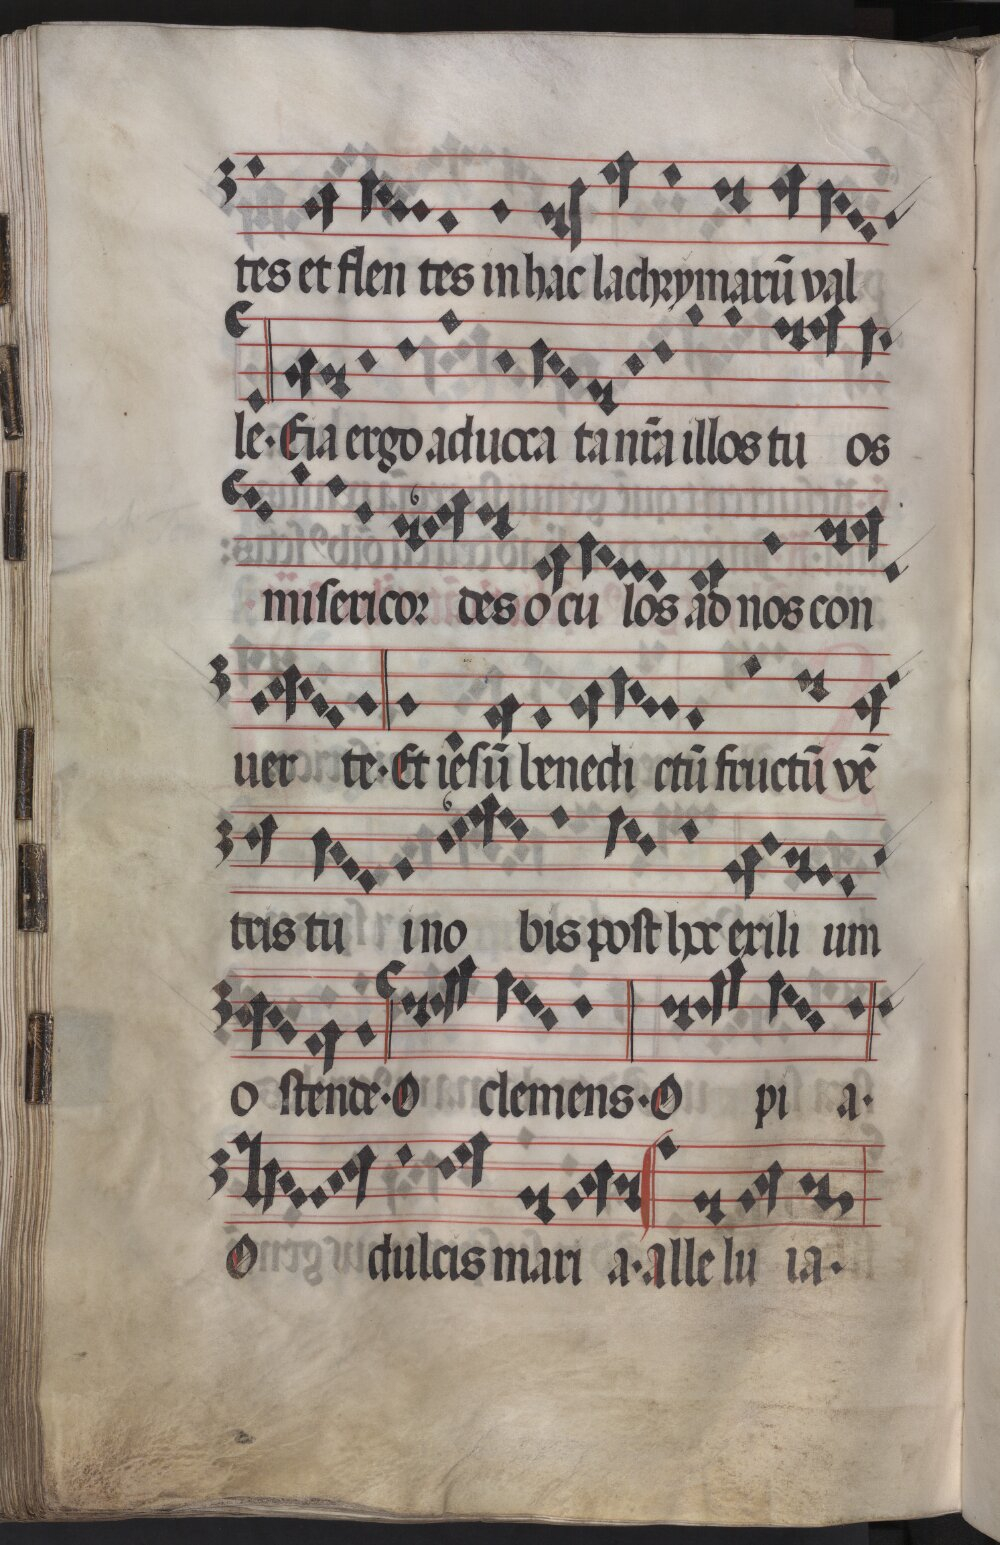 tes et flen tes in hac lachrymarū val
le· Eia ergo aduoca ta nr̄a illos tu os
misericor des o cu los ad nos con
uer te· Et iēsū benedi ctū fructū vē
tris tu i no bis post hoc exili um
o stende· O clemens· O pi a·
O dulcis mari a· alle lu ia·